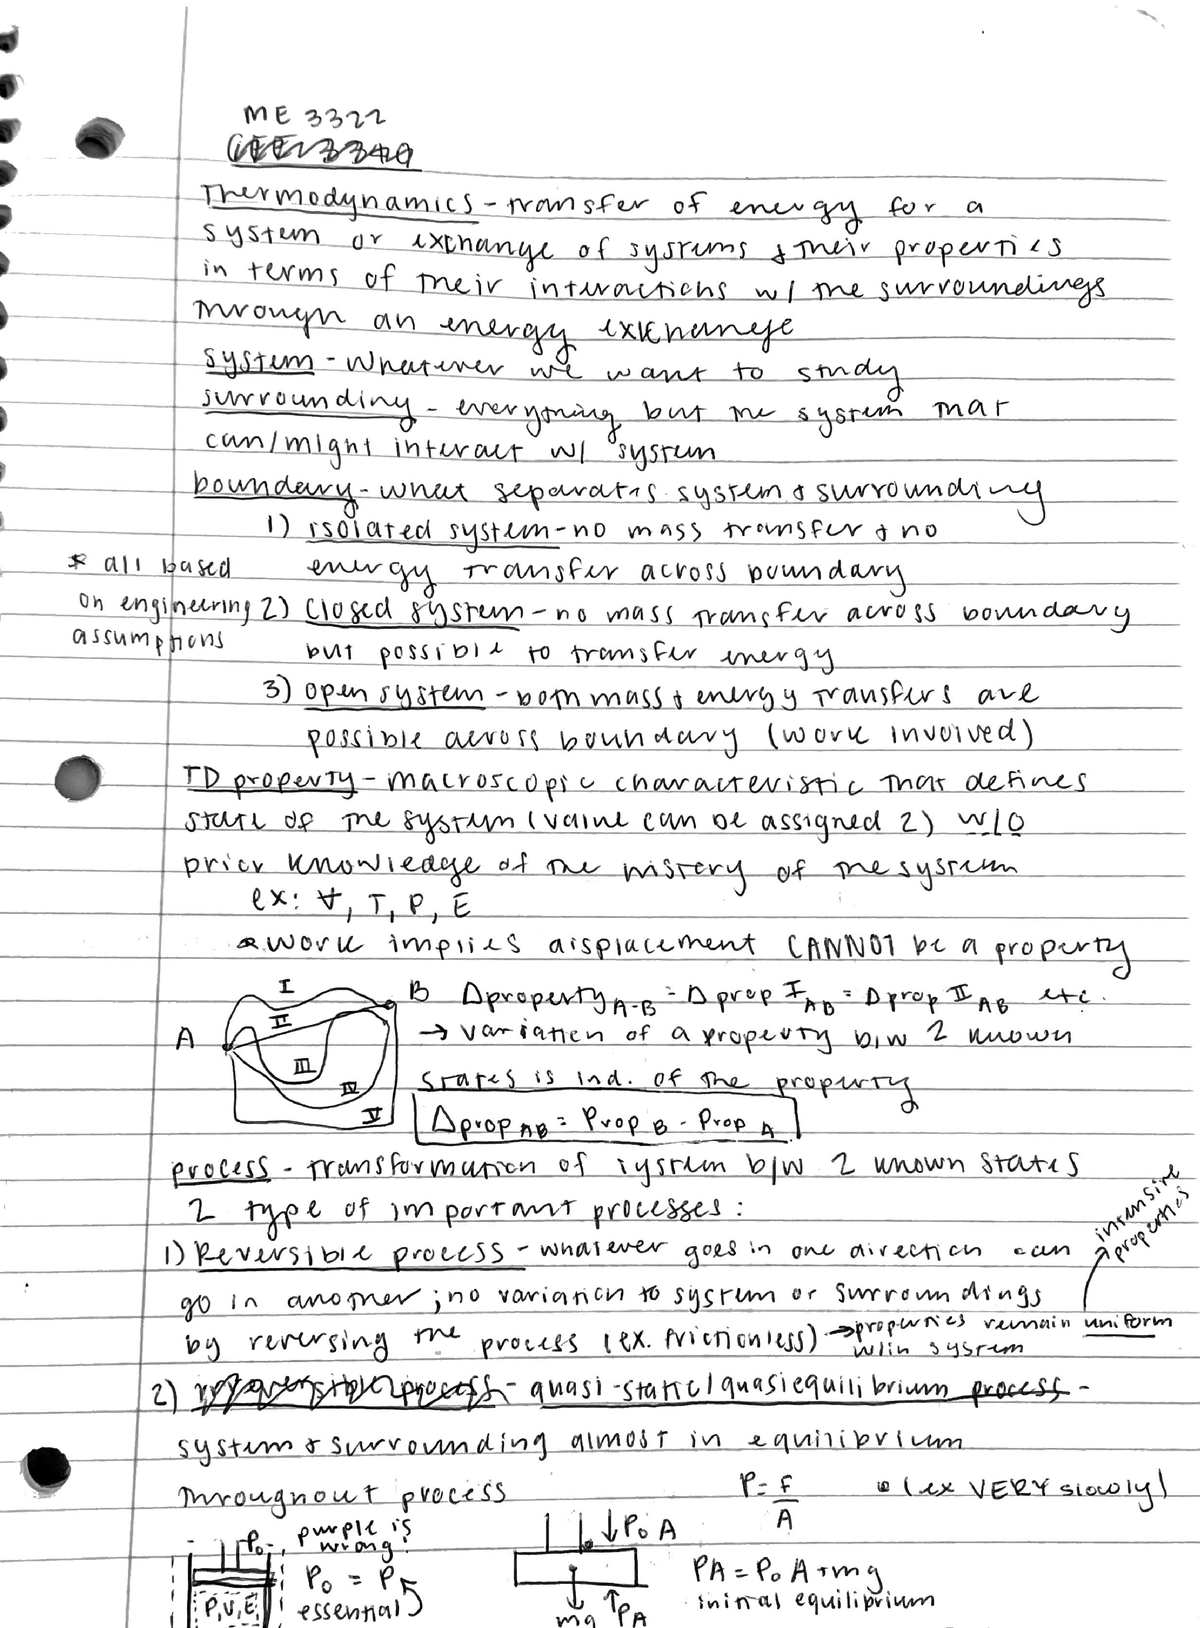 ME 3322
Thermodynamics - transfer of energy for a
system or exchange of systems & their properties
in terms of their interactions w/ the surroundings
through an energy exchange
system - whatever we want to study
surrounding - everything but the system that
can/might interact w/ system
boundary - what separates system & surrounding
1) isolated system - no mass transfer & no
energy transfer across boundary
* all based
on engineering
assumptions
2) closed system - no mass transfer across boundary
but possible to transfer energy
3) open system - both mass & energy transfers are
possible across boundary (work involved)
TD property - macroscopic characteristic that defines
state of the system (value can be assigned 2) w/o
prior knowledge of the history of the system
ex: V, T, P, E
* work implies displacement CANNOT be a property
A I II III IV V B
Δproperty A-B = Δprop I AB = Δprop II AB etc.
→ variation of a property b/w 2 known
states is ind. of the property
Δprop AB = Prop B - Prop A
process - transformation of system b/w 2 known states
2 type of important processes:
1) Reversible process - whatever goes in one direction can
go in another; no variation to system or surroundings
by reversing the process (ex. frictionless) → properties remain uniform
w/in system
intensive
properties
2) quasi-static/quasiequilibrium process -
system & surrounding almost in equilibrium
throughout process
P = F
A
(ex VERY slowly)
P₀
purple is
wrong!
P₀ = P
essential
P, V, E
↓ P₀ A
mg
↑ PA
PA = P₀ A + mg
initial equilibrium